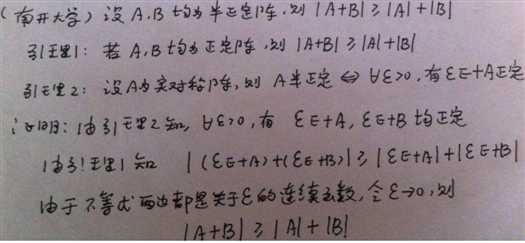 (南开大学) 设 A.B 均为半正定阵,则 |A+B| ≥ |A|+|B|
引理1: 若 A,B 均为正定阵,则 |A+B| ≥ |A|+|B|
引理2: 设A为实对称阵,则 A半正定 ⇔ ∀ε>0, 有εE+A正定
证明: 由引理2知, ∀ε>0, 有 εE+A, εE+B 均正定
由引理1知 |(εE+A)+(εE+B)| ≥ |εE+A|+|εE+B|
由于不等式两边都是关于ε的连续函数,令ε→0,则
|A+B| ≥ |A|+|B|